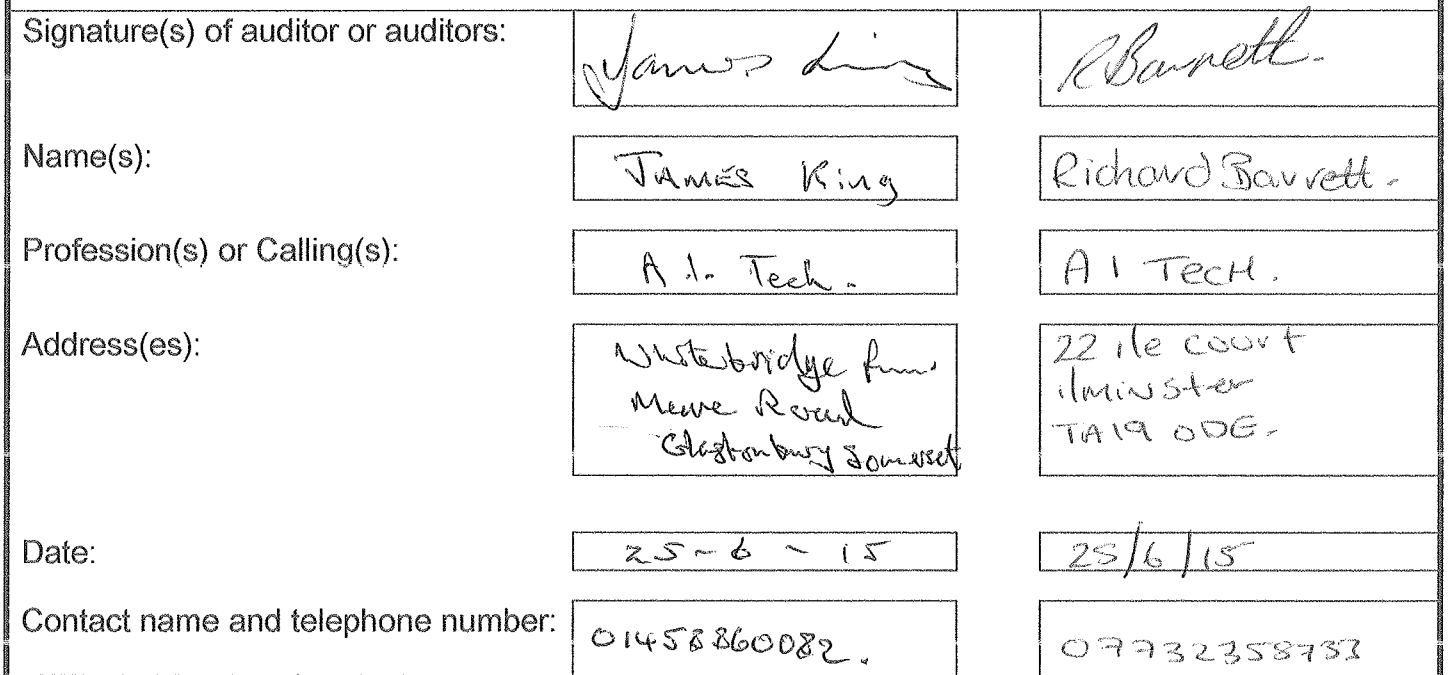 Signature(s) of auditor or auditors:
James King R Barrett.
Name(s): JAMES King Richard Barrett.
Profession(s) or Calling(s): A.I. Tech. A I TecH.
Address(es): Whitebridge farm 22 ile court
Meare Road ilminster
Glastonbury Somerset TA19 0DG.
Date: 25-6-15 25/6/15
Contact name and telephone number: 01458860082. 07732358733